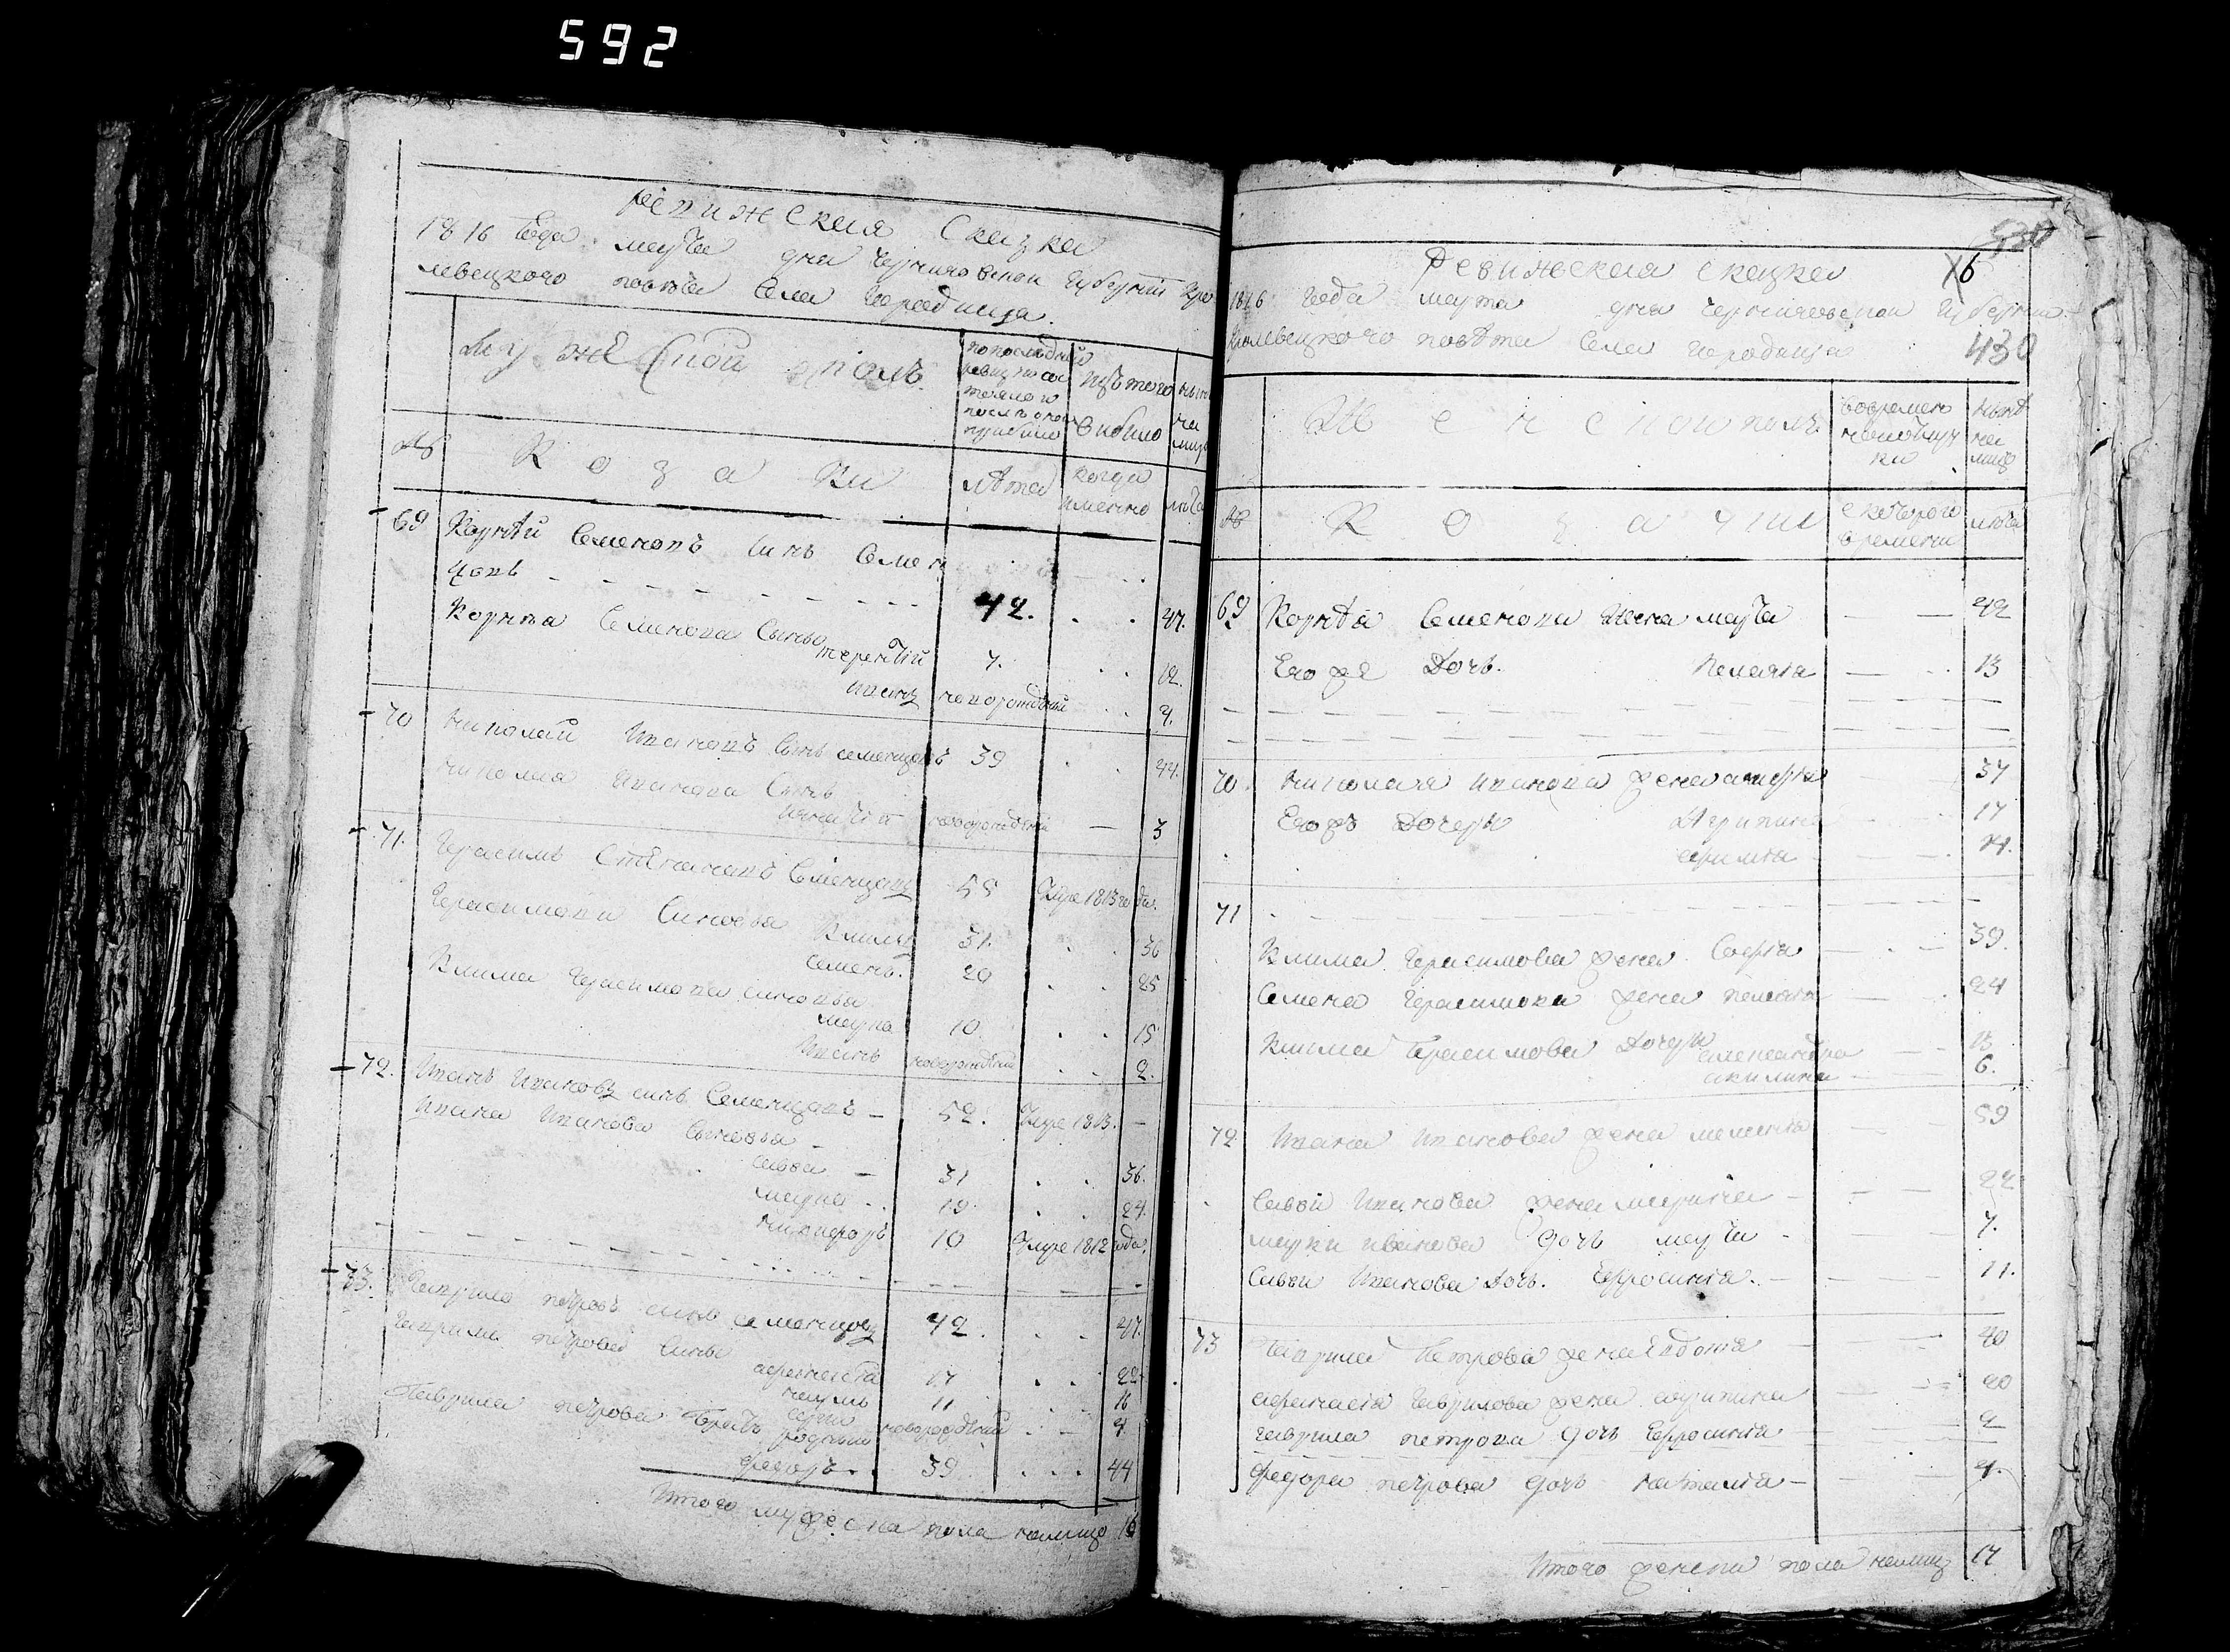 592
Ревижская Сказка
1816 Года марта дня Черниговской Губернии Кро
левецкого повѣта Села Городища.
Мужеской полъ
по последней ревизии состояло и после оной прибыло
изъ того выбыло
ныне на лицо
№
Козаки
лѣта
когда именно
лѣта
69 Корнѣй Семеновъ Синъ Семен
цовъ 42. 47.
Корнѣя Семенова Сыны
терентий 7. 12.
иванъ новорожденый 4.
70 Николай Ивановъ Сынъ семенцовъ 39 44.
Николая Иванова Сынъ
игнатий новорожденый 3
71. Герасимъ Степановъ Семенцовъ 55 Умре 1813 года.
Герасимова Синовья Климъ 31. 36
семенъ. 20 25
Клима Герасимова синовья
марко 10. 15
Иванъ новорожденый 2.
72. Иванъ Ивановъ синъ Семенцовъ 52. Умре 1813.
Ивана Иванова Сыновья
савва 31 36.
марко 19. 24.
никифоръ 10 Умре 1812 года.
73. Гаврило петровъ синъ семенцовъ 42. 47.
Гаврила петрова Сины
афанасiй 17 22
наумъ 11 16
сергiй новорожденый 4
Гаврила петрова Братъ родный
федоръ. 39. 44
Итого мужеска пола налицо 16
530
6
Ревижская сказка
1816 Года марта дня Черниговской Губернии
Кролевецкого повѣта Села Городища
430
Женской полъ
во временной отлучки
ныне на лицо
№
Козачки
с которого времени
лѣта
69 Корнѣя Семенова жена марта 42
Его же Дочь. Пелагiя 13
70. Николая Иванова жена 37
Его же Дочери Агрипина 17
14.
71
Клима Герасимова жена Софiя 39.
Семена Герасимова жена пелагiя 24
Клима Герасимова Дочери александра 13
акилина 6.
72 Ивана Иванова жена меланiя 59
Савви Иванова жена марина 22
марки иванова дочь марта 7.
Савви Иванова Дочь. Ефросинiя. 11.
73 Гаврила Петрова жена Евдокiя 40
афанасiя Гаврилова жена агрипина 20
гаврила петрова дочь Ефросинiя 9
Федора петрова дочь наталiя 4.
Итого женска пола налицо 17